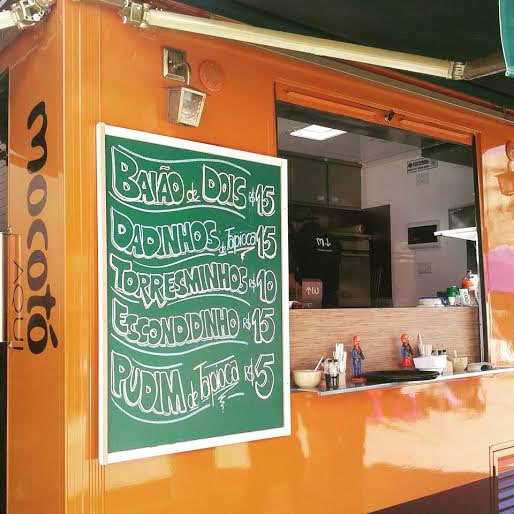 mocotó
AQUI
BAIÃO de DOIS R$15
DADINHOS de Tapioca R$15
TORRESMINHOS R$10
ESCONDIDINHO R$15
PUDIM de Tapioca R$5